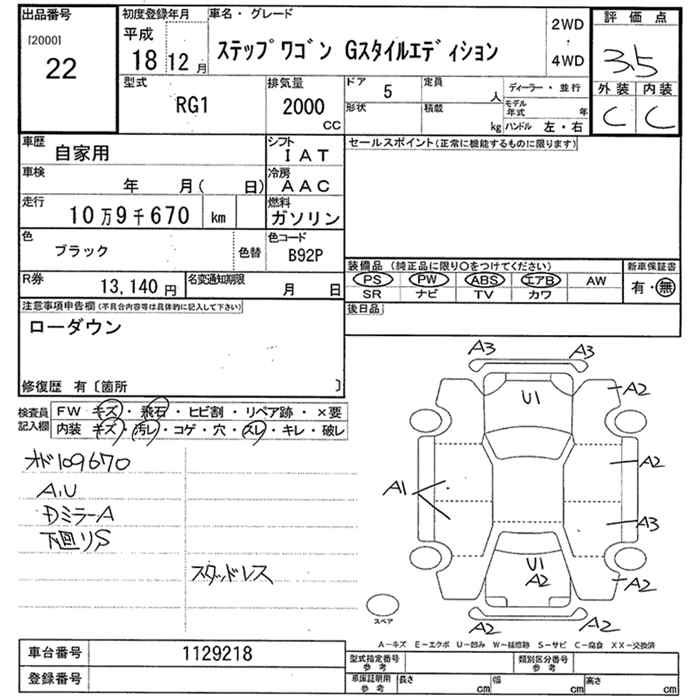 出品番号 初度登録年月 車名・グレード 2WD 評価点
[2000] 平成 ・
22 18 12月 ステップワゴン Gスタイルエディション 4WD 3.5
型式 排気量 ドア 5 定員 人 ディーラー・並行 外装 内装
RG1 2000 CC 形状 積載 kg モデル年式 年 C C
ハンドル 左・右
車歴 自家用 シフト IAT セールスポイント(正常に機能するものに限ります)
車検 年 月( 日) 冷房 AAC
走行 10万9千670 km 燃料 ガソリン
色 ブラック 色替 色コード B92P
装備品 (純正品に限り○をつけてください) 新車保証書
PS PW ABS エアB AW 有・無
R券 13,140円 名変通知期限 月 日 SR ナビ TV カワ
注意事項申告欄(不具合内容等は具体的に記入して下さい) 後日品
ローダウン
修復歴 有〔箇所 〕
検査員記入欄 FW キズ・飛石・ヒビ割・リペア跡・×要
内装 キズ・汚レ・コゲ・穴・スレ・キレ・破レ
オド109670
A.U
DミラーA
下廻りS
スタッドレス
A3 A3
U1 A2
A2
A1
A3
U1
A2 A2
スペア A2
A-キズ E-エクボ U-凹み W-補修跡 S-サビ C-腐食 XX-交換済
車台番号 1129218 型式指定番号 参考 類別区分番号 参考
登録番号 車庫証明用 参考 長さ cm 幅 cm 高さ cm